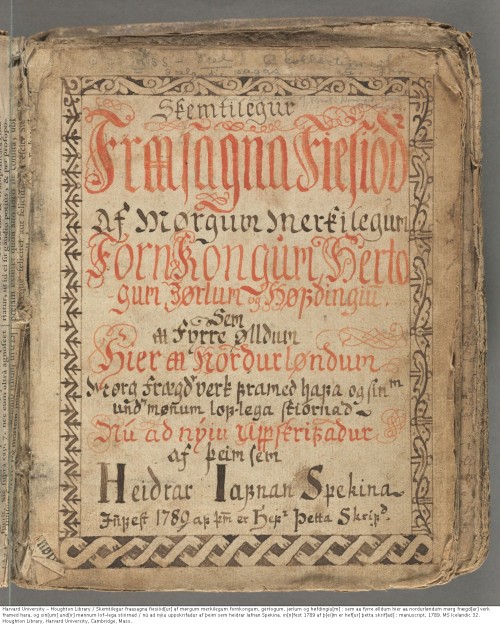 Skemtilegur
Fraasagna Fiesiod
Af Mørgum Merkilegum
Forn Kongum Herto
gum Jørlum og Høfdingiū.
Sem
aa Fyrre ølldum
Hier aa Nordurløndum
Marg Frægdʳ verk framed hafa og sinᵐ
undʳ mønum lof-lega stiornad
Nú ad nýiu Uppskrifadur
af þeim sem
Heidrar Iafnan Spekina
Innfest 1789 af þm̄ er Hefʳ Þetta Skrifᵈ.
Harvard University - Houghton Library / Skemtilegar fraasagna fiesiod[ur] af mørgum merkilegum fornkongum, gertogum, jørlum og høfdingiu[m] : sem aa fyrre ølldum hier aa nordurløndum marg frægd[ar] verk
framed hafa, og sin[um] und[ir] mønnum lof-lega stiornad / nú ad nýiu uppskrifadur af þeim sem heidrar Iafnan Spekina, in[n]fest 1789 af þ[ei]m er hef[ur] þetta skrif[ad] : manuscript, 1789. MS Icelandic 32.
Houghton Library, Harvard University, Cambridge, Mass.